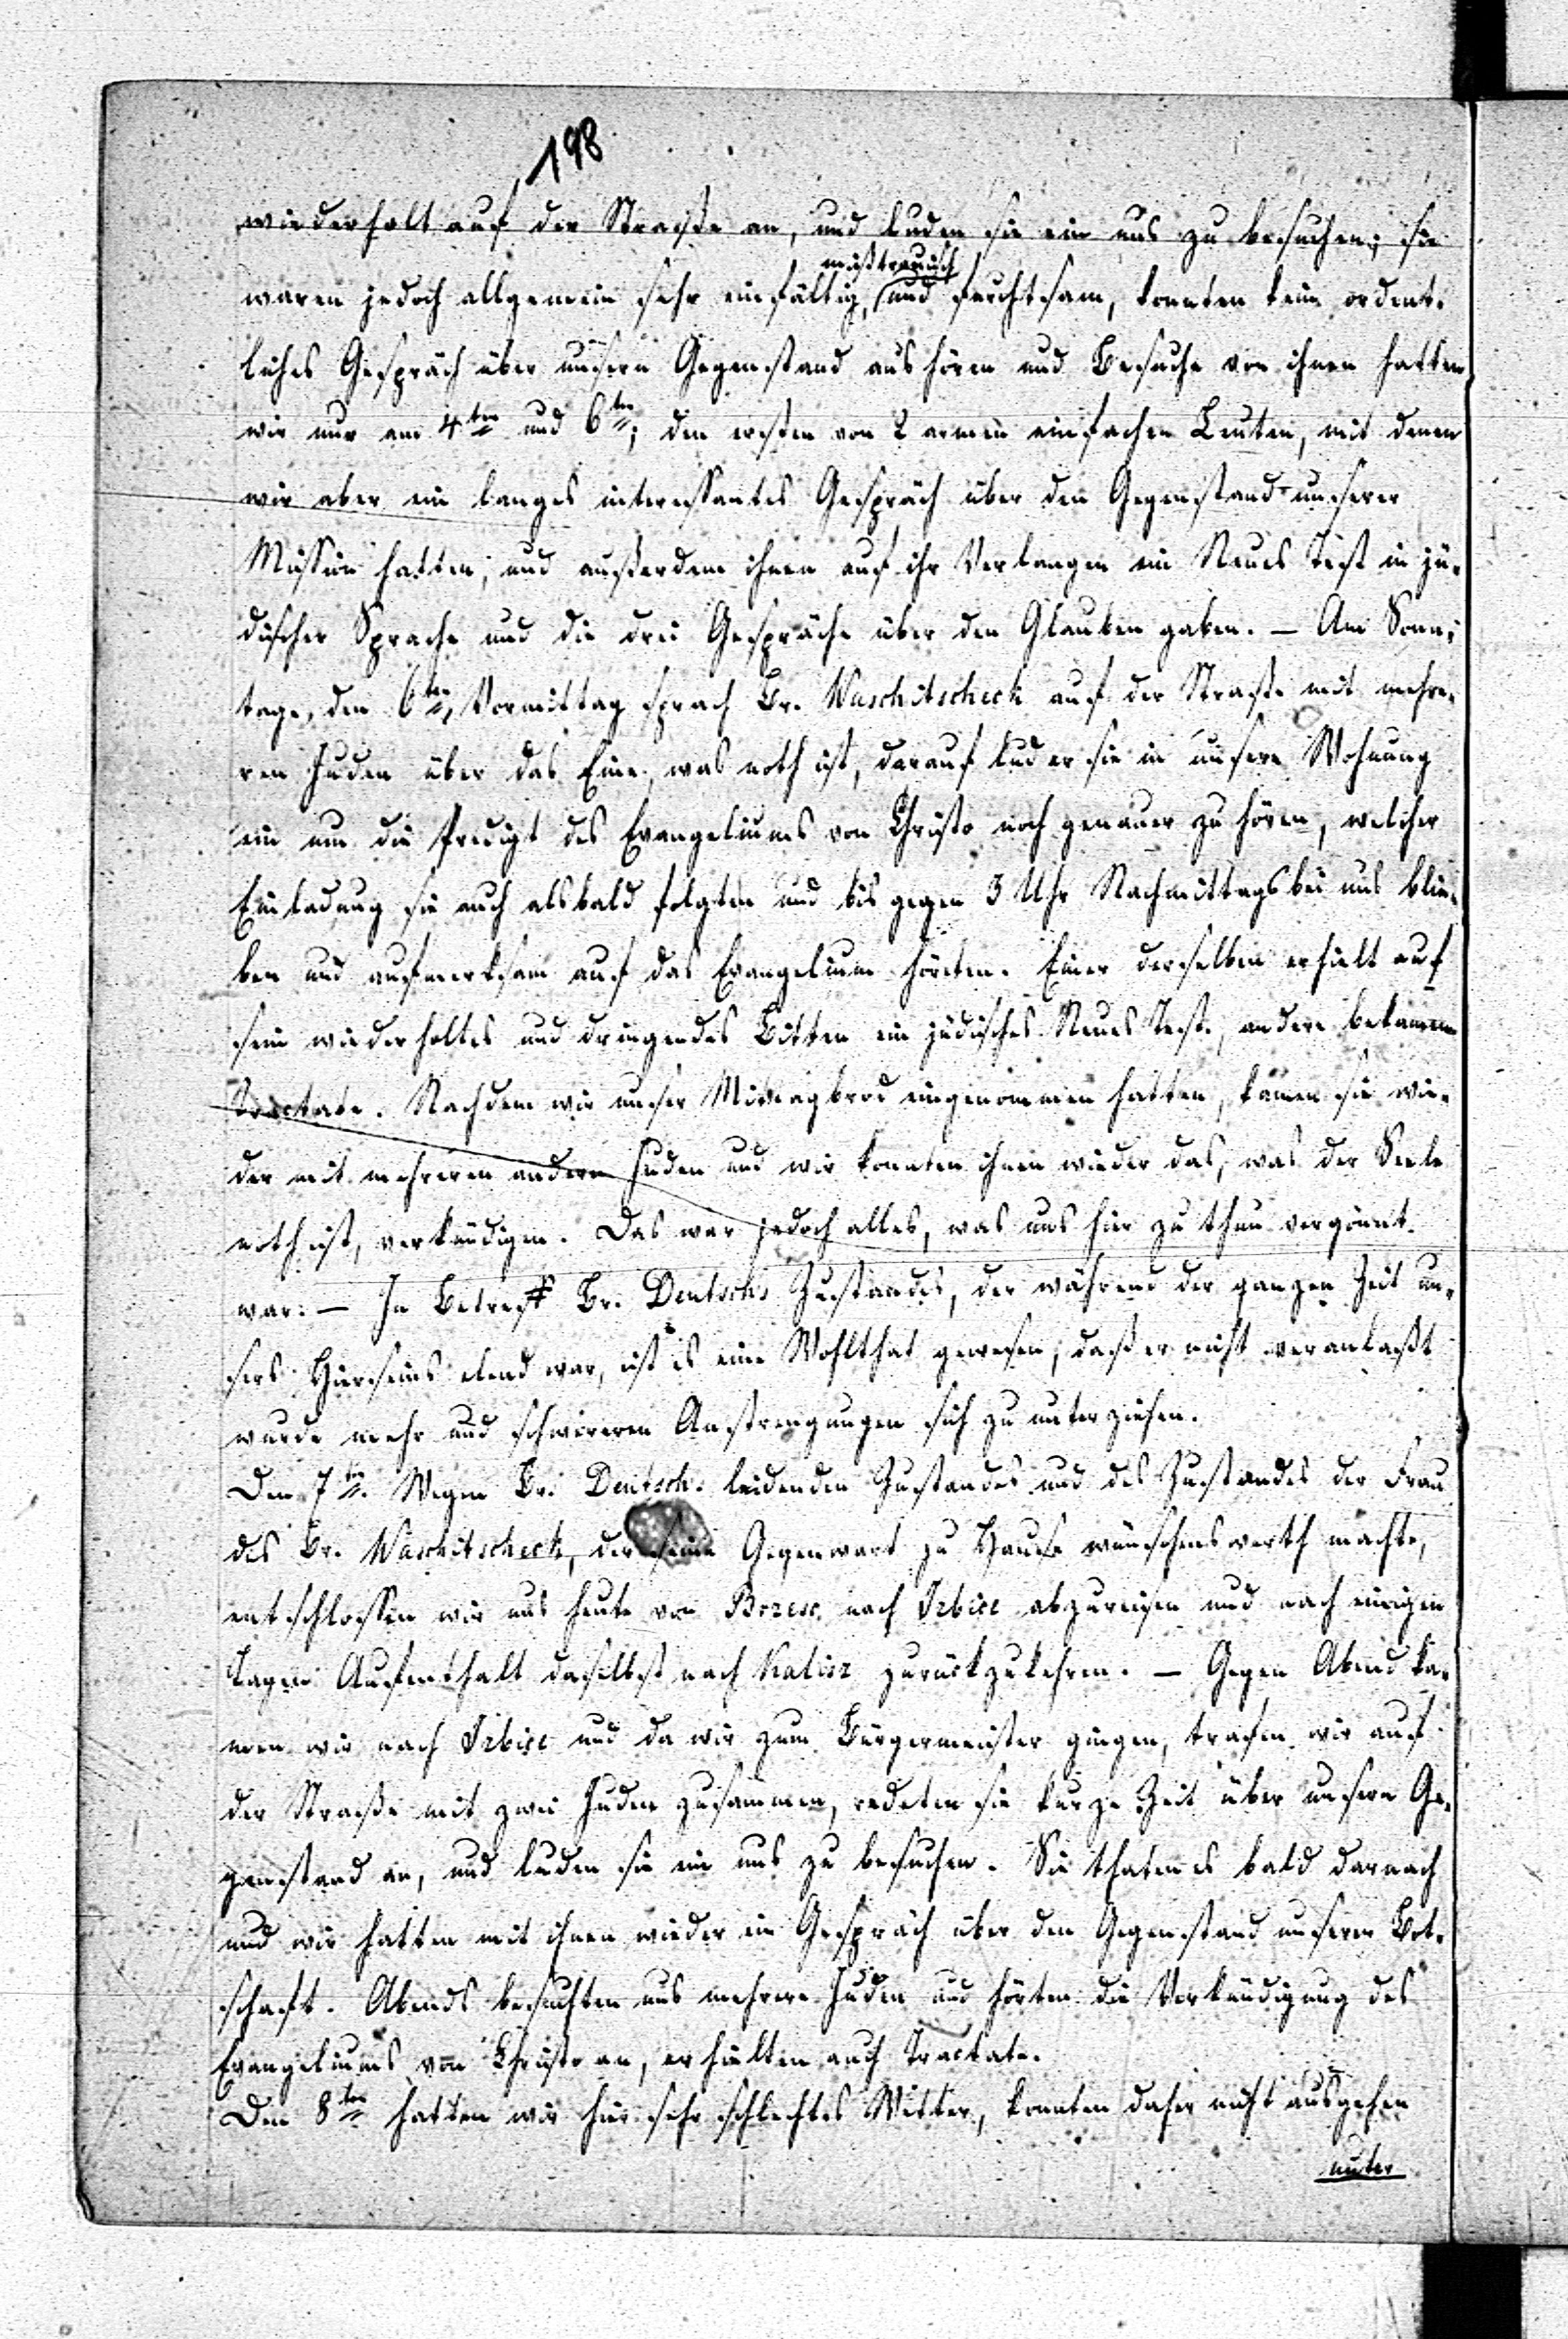 198
wiederholt auf der Straße an, und luden sie ein uns zu besuchen; sie
mißtrauisch
waren jedoch allgemein sehr einfältig, und furchtsam, konnten kein ordent-
liches Gespräch über unsern Gegenstand aushören und Besuche von ihnen hatten
wir nur am 4ten und 6ten; den ersten von 2 armen einfachen Leuten, mit denen
wir aber ein langes interessantes Gespräch über den Gegenstand unserer
Mission hatten, und außerdem ihnen auf ihr Verlangen ein Neues Test in jü-
discher Sprache und die drei Gespräche über den Glauben gaben. — Am Sonn-
tage, den 6ten, Vormittag sprach Br. Waschitscheck auf der Straße mit mehre-
ren Juden über das Eine, was noth ist, darauf lud er sie in unsere Wohnung
ein um die Predigt des Evangeliums von Christo noch genauer zu hören, welcher
Einladung sie auch alsbald folgten und bis gegen 3 Uhr Nachmittags bei uns blie-
ben und aufmerksam auf das Evangelium hörten. Einer derselben erhielt auf
sein wiederholtes und dringendes Bitten ein jüdisches Neues Test., andere bekamen
Tractate. Nachdem wir unser Mittagbrod eingenommen hatten, kamen sie wie-
der mit mehreren andern Juden und wir konnten ihnen wieder das, was der Seele
noth ist, verkündigen. Das war jedoch alles, was uns hier zu thun vergönnt
war. — In Betreff Br. Deutsch's Zustandes, der während der ganzen Zeit un-
sers Hierseins elend war, ist es eine Wohlthat gewesen, daß er nicht veranlaßt
wurde mehr und schwereren Anstrengungen sich zu unterziehen.
Den 7ten. Wegen Br. Deutsch. leidenden Zustandes und des Zustandes der Frau
des Br. Waschitscheck, der seine Gegenwart zu Hause wünschenswerth machte,
entschlossen wir uns heute von Brzesc. nach Izbice abzureisen und nach einigen
Tagen Aufenthalt daselbst nach Kalisz zurückzukehren. — Gegen Abend ka-
men wir nach Izbice und da wir zum Bürgermeister gingen, trafen wir auf
der Straße mit zwei Juden zusammen, redeten sie kurze Zeit über unsern Ge-
genstand an, und luden sie ein uns zu besuchen. Sie thaten es bald darnach
und wir hatten mit ihnen wieder ein Gespräch über den Gegenstand unserer Bot-
schaft. Abends besuchten uns mehrere Juden und hörten die Verkündigung des
Evangeliums von Christo an, erhielten auch Tractate.
Den 8ten hatten wir hier sehr schlechtes Wetter, konnten daher nicht ausgehen
unter